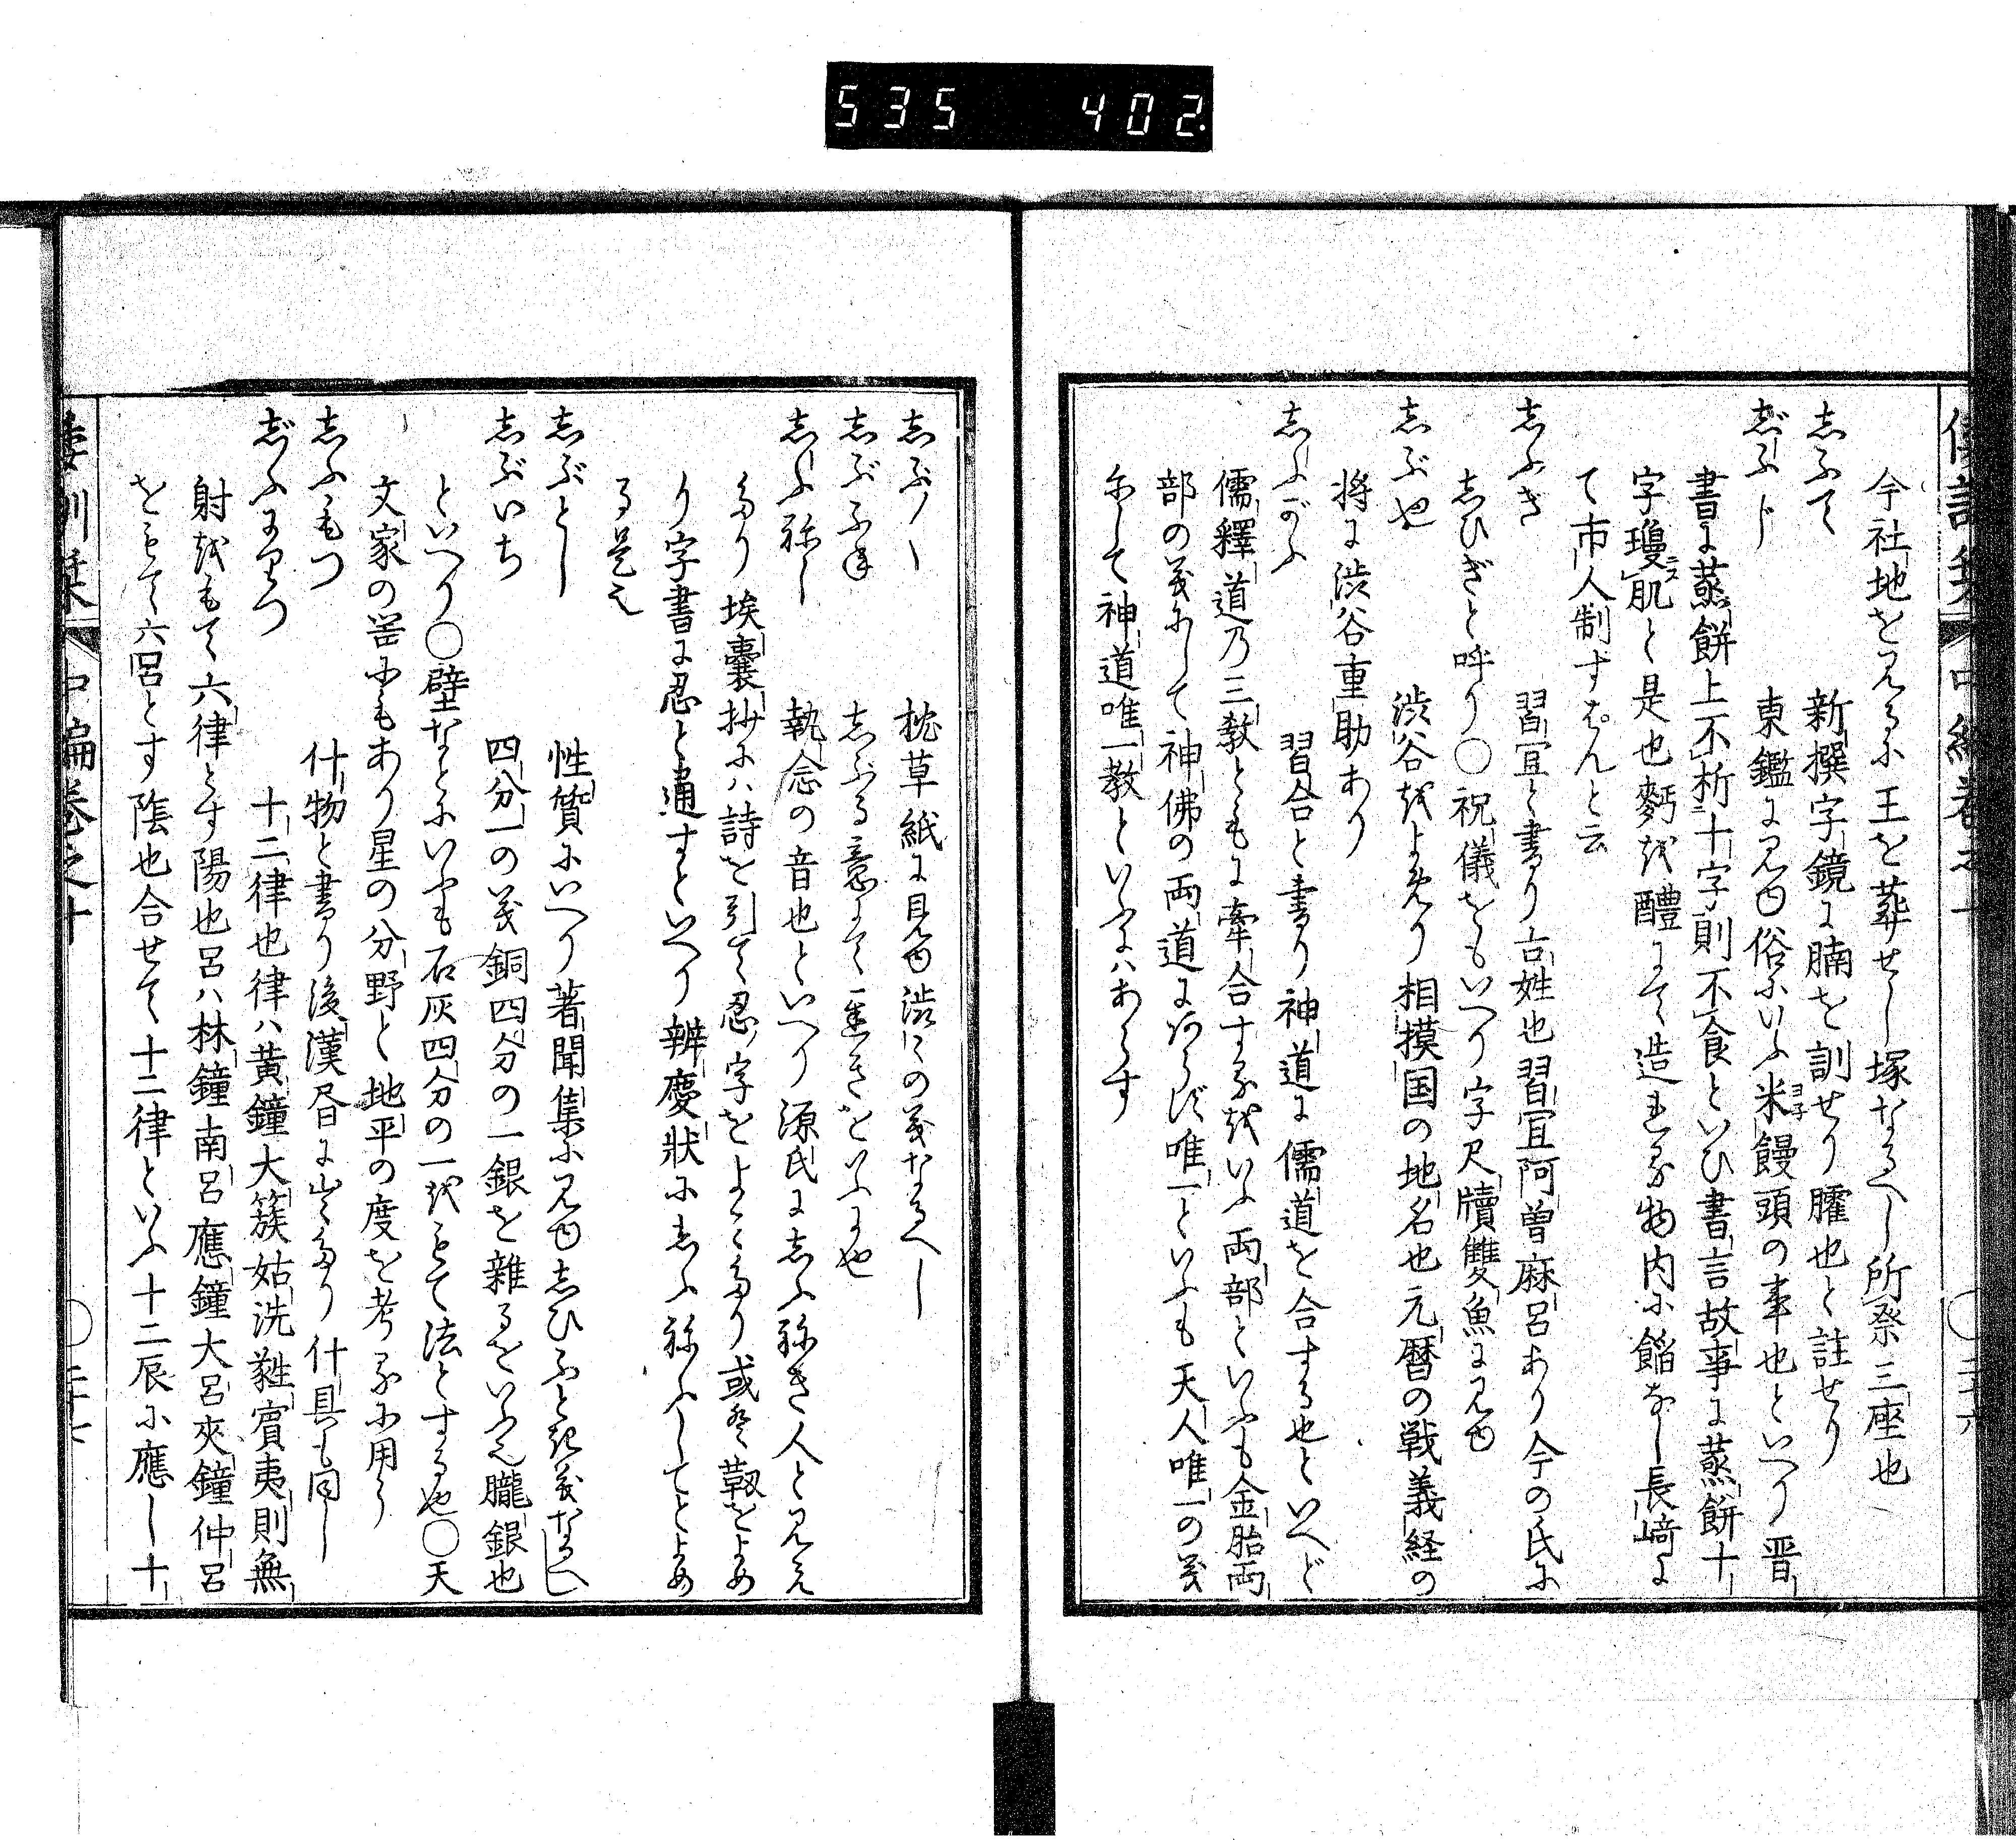 535 402
倭訓栞 中編巻之十
今社地を見るに王を葬せし塚なるへし所祭三座也
志ふて 新撰字鏡に腩を訓せり臛也と註せり
志゛ふじ 東鑑に見ゆ俗にいふ米饅頭の事也といへり晋
書に蒸餅上不析十字則不食といひ書言故事に蒸餅十
字瓊肌と是也麪を醴にて造れる物内に餡なし長﨑に
て市人制すはんと云
志ふき 習宜と書り古姓也習宜阿曽麻呂あり今の氏に
志ひぎと呼り〇祝儀をもいへり字尺牘雙魚に見ゆ
志ぶや 渋谷をよめり相摸国の地名也元暦の戦義経の
将に渋谷重助あり
志ふがふ 習合と書り神道に儒道を合する也といへど
儒釋道乃三教ともに牽合するをいふ両部といふも金胎両
部の義にして神佛の両道にあらず唯一といふも天人唯一の義
にして神道唯一教といふにハあらす
志ぶ〱 枕草紙に見ゆ渋〻の義なるへし
志ぶふね 志ぶる意にて重きをいふにや
志ふねし 執念の音也といへり源氏に志ふねき人と見え
たり埃嚢抄にハ詩を引て忍字をよみたり或は靱をよめ
り字書に忍と通すといへり辨慶状に志ふねふしてとよめ
る是也
志ぶとし 性質にいへり著聞集に見ゆ志ひふとき義なるへし
志ぶいち 四分一の義銅四分の一銀を雑るをいふ也朧銀也
といへり〇壁なとにいふも石灰四分の一をもて法とする也〇天
文家の器にもあり星の分野と地平の度を考るに用う
志ふもつ 什物と書り後漢書に出たり什具も同し
志゛ふにりつ 十二律也律ハ黄鐘大簇姑洗蕤賓夷則無
射をもて六律とす陽也呂ハ林鐘南呂應鐘大呂夾鐘仲呂
をもて六呂とす陰也合せて十二律といふ十二辰に應し十
倭訓栞 中編巻之十